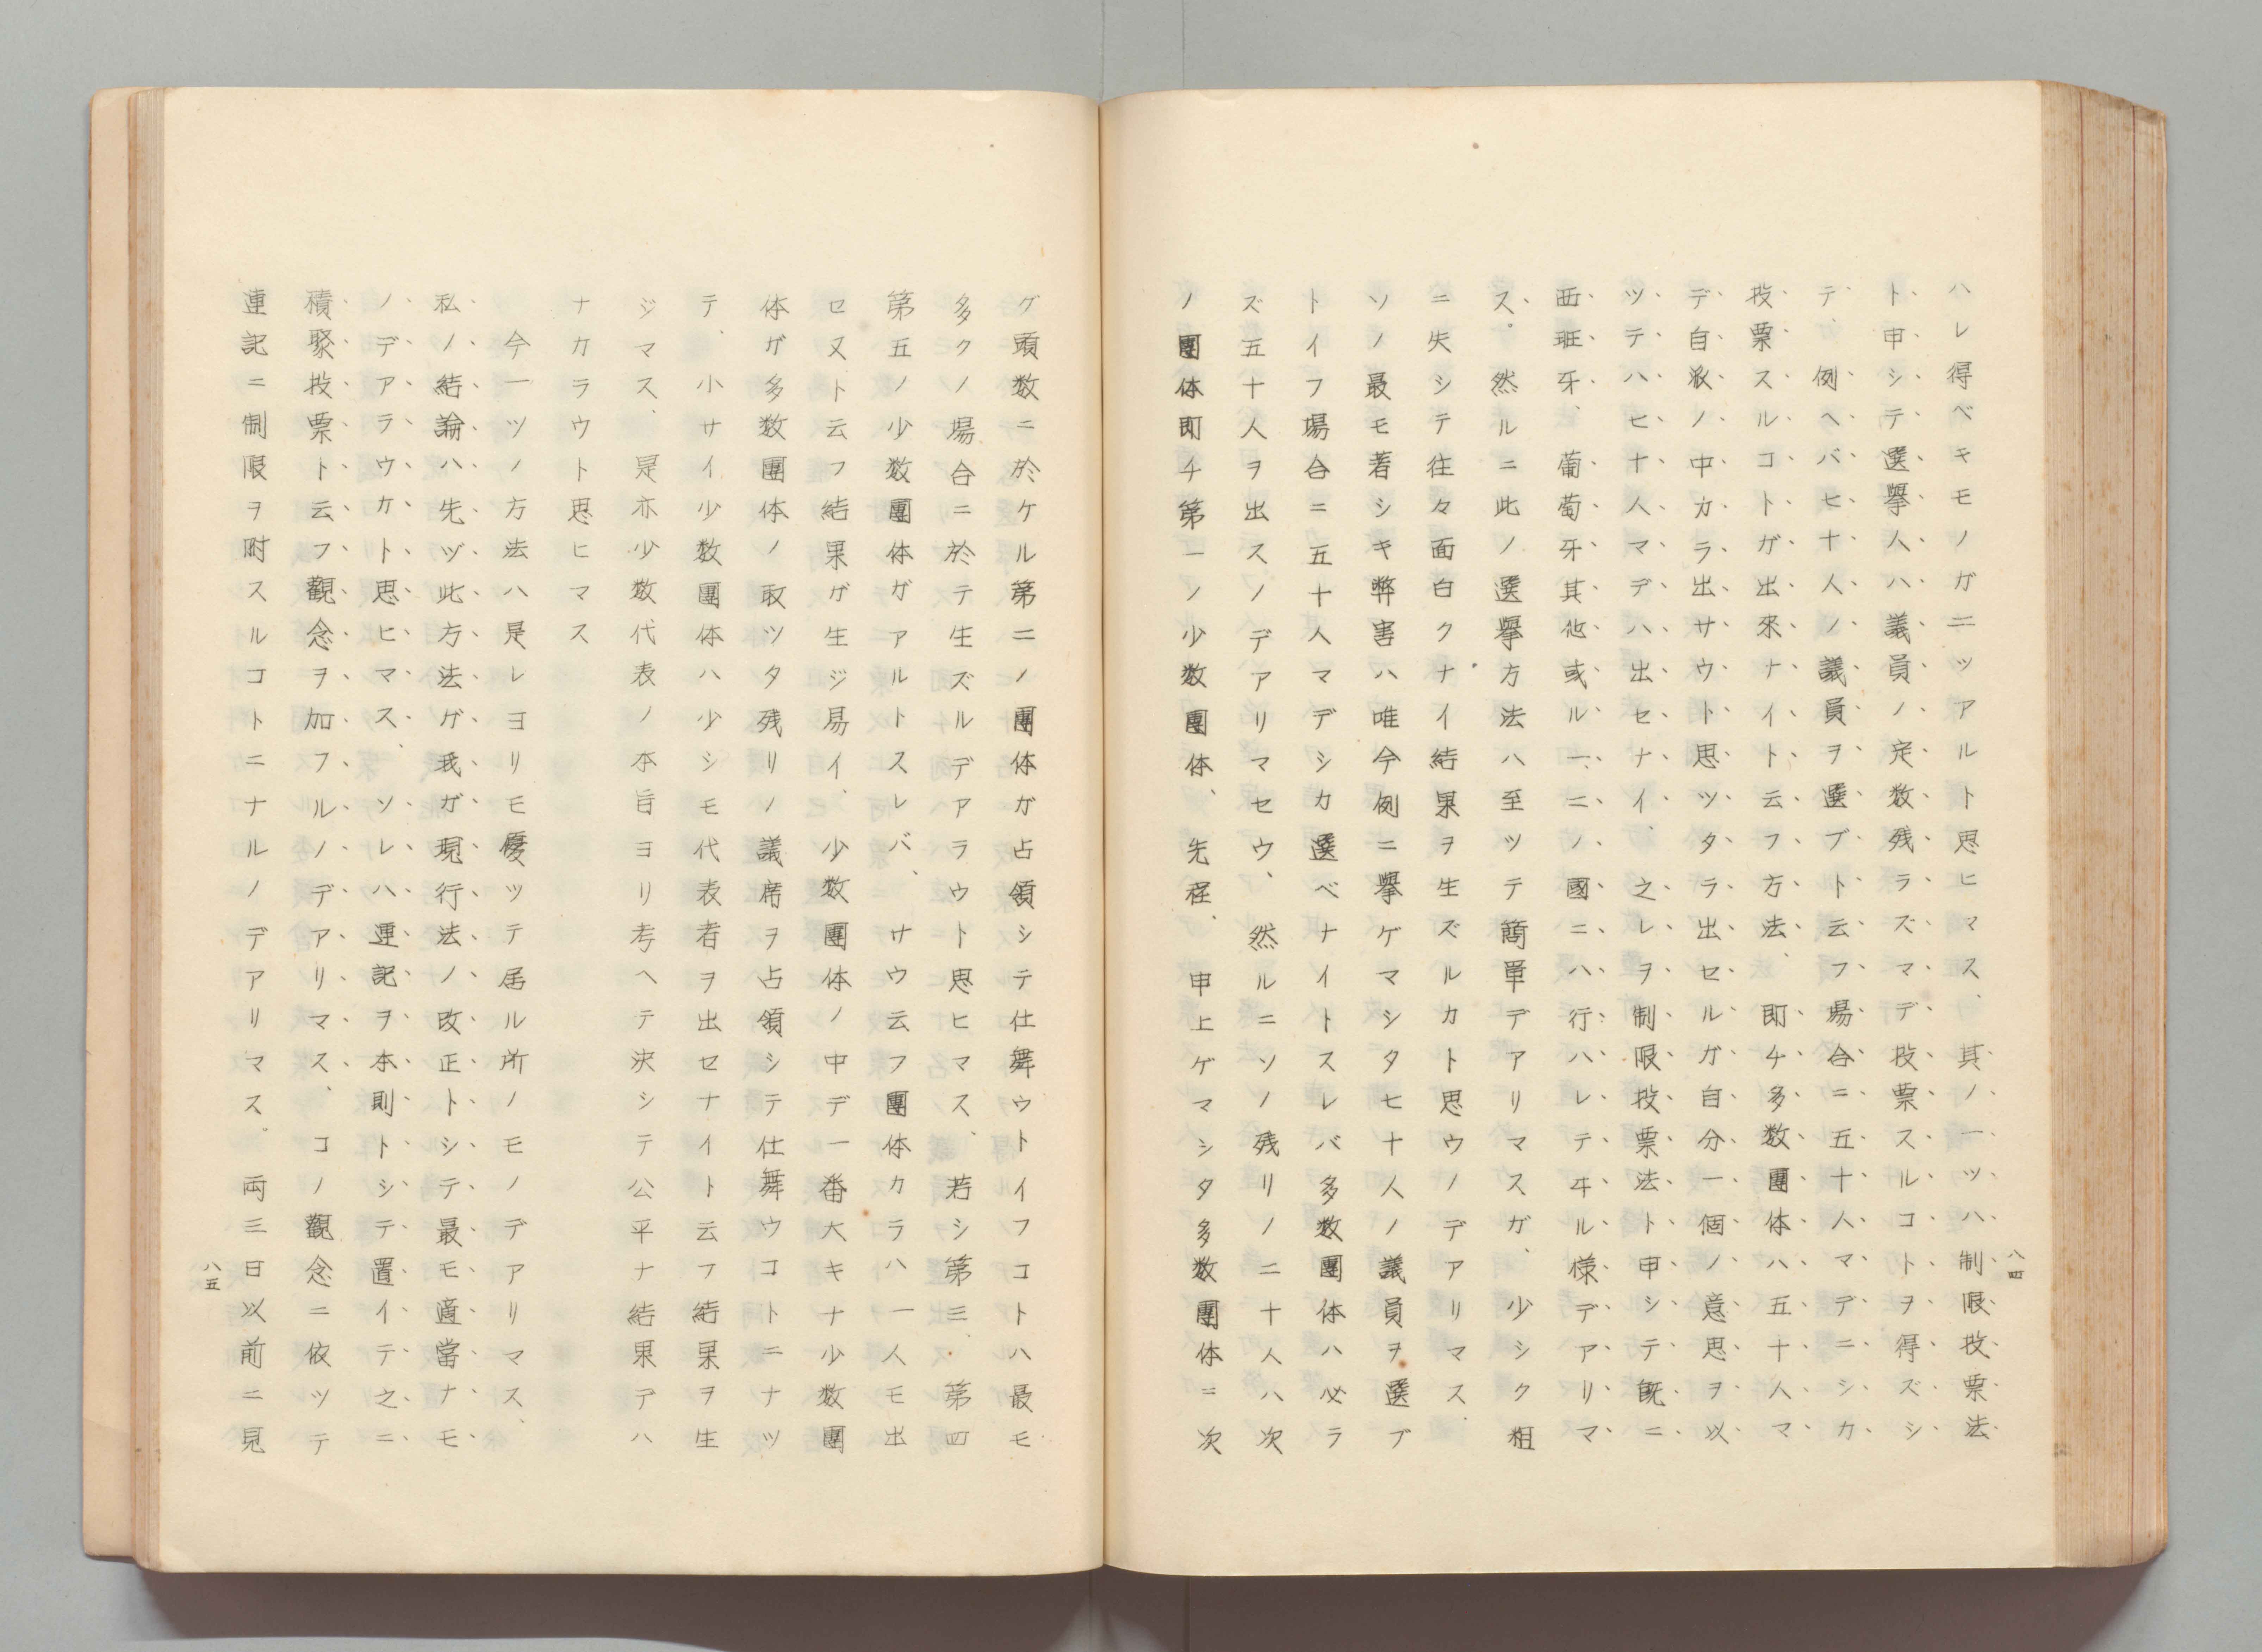 ハレ得ベキモノガ二ツアルト思ヒマス、其ノ一ツハ制限投票法
ト申シテ選擧人ハ議員ノ定数残ラズマデ投票スルコトヲ得ズシ
テ、例ヘバ七十人ノ議員ヲ選ブト云フ場合ニ五十人マデニシカ
投票スルコトガ出來ナイト云フ方法、即チ多数團体ハ五十人マ
デ自派ノ中カラ出サウト思ツタラ出セルガ自分一個ノ意思ヲ以
ツテハ七十人マデハ出セナイ、之レヲ制限投票法ト申シテ既ニ
西班牙、葡萄牙其他或ル一、二ノ國ニハ行ハレテヰル様デアリマ
ス。然ルニ此ノ選擧方法ハ至ツテ簡單デアリマスガ、少シク粗
ニ失シテ往々面白クナイ結果ヲ生ズルカト思ウノデアリマス、
ソノ最モ著シキ弊害ハ唯今例ニ擧ゲマシタ七十人ノ議員ヲ選ブ
トイフ場合ニ五十人マデシカ選ベナイトスレバ多数團体ハ必ラ
ズ五十人ヲ出スノデアリマセウ、然ルニソノ残リノ二十人ハ次
ノ團体即チ第一ノ少数團体、先程、申上ゲマシタ多数團体ニ次
八四
グ頭数ニ於ケル第二ノ團体ガ占領シテ仕舞ウトイフコトハ最モ
多クノ場合ニ於テ生ズルデアラウト思ヒマス、若シ第三、第四
第五ノ少数團体ガアルトスレバ、サウ云フ團体カラハ一人モ出
セ又ト云フ結果ガ生ジ易イ、少数團体ノ中デ一番大キナ少数團
体ガ多数團体ノ取ツタ残リノ議席ヲ占領シテ仕舞ウコトニナツ
テ、小サイ少数團体ハ少シモ代表者ヲ出セナイト云フ結果ヲ生
ジマス、是亦少数代表ノ本旨ヨリ考ヘテ決シテ公平ナ結果デハ
ナカラウト思ヒマス
今一ツノ方法ハ是レヨリモ優ツテ居ル所ノモノデアリマス、
私ノ結論ハ先ヅ此方法ガ我ガ現行法ノ改正トシテ最モ適當ナモ
ノデアラウカト思ヒマス、ソレハ連記ヲ本則トシテ置イテ之ニ
積聚投票ト云フ觀念ヲ加フルノデアリマス、コノ觀念ニ依ツテ
連記ニ制限ヲ附スルコトニナルノデアリマス。両三日以前ニ見
八五